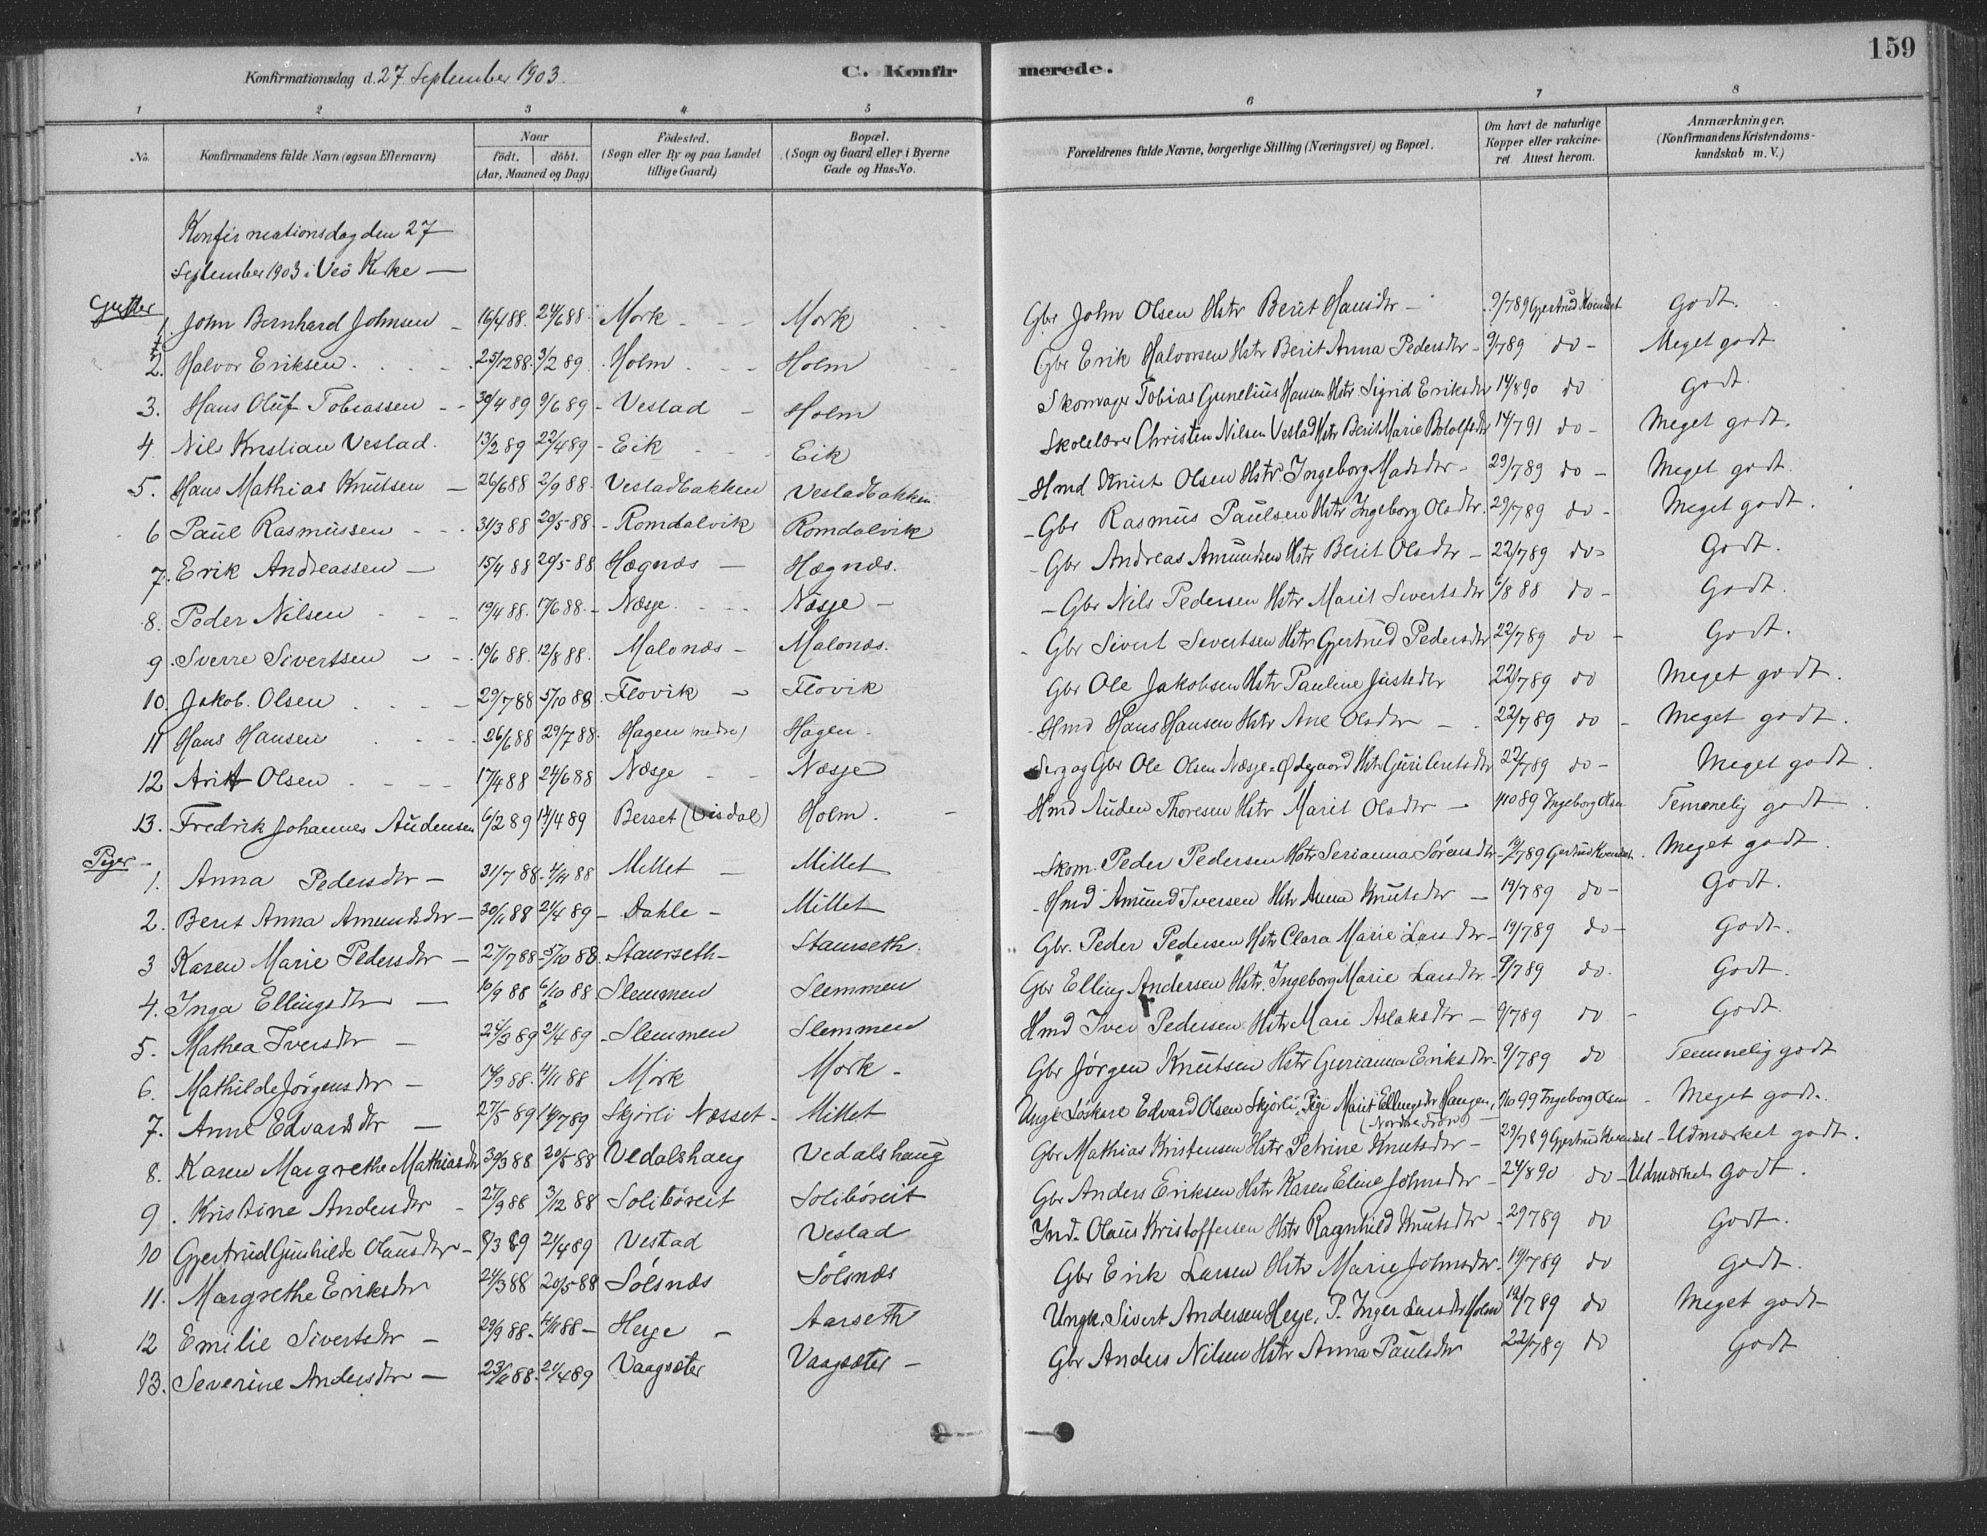 159
Konfirmationsdag d. 27 September 1903. C. Konfirmerede.
1 2 3 4 5 6 7 8
No. Konfirmandens fulde Navn (ogsaa Efternavn) Naar födt. döbt. (Aar, Maaned og Dag) Födested. (Sogn eller By og paa Landet tillige Gaard) Bopæl. (Sogn og Gaard eller i Byerne Gade og Hus-No. Forældrenes fulde Navne, borgerlige Stilling (Næringsvei) og Bopæl. Om havt de naturlige Kopper eller vakcineret Attest herom. Anmærkninger. (Konfirmandens Kristendomskundskab m. V.)
Konfirmationsdag den 27
September 1903 i Veö Kirke —
Gutter
1. John Bernhard Johnsen 16/4 88. 24/6 88. Mork Mork Gbr John Olsen Hstr Berit Hansdtr 9/7 89 Gjertrud Kvendset Godt.
2. Halvor Eriksen 25/12 88. 3/2 89. Holm Holm Gbr Erik Halvorsen Hstr Berit Anna Pedersdtr 9/7 89 do Meget godt
3. Hans Oluf Tobiassen 30/4 89 9/6 89 Vestad Holm Skomager Tobias Gunelius Hansen Hstr Sigrid Eriksdtr 14/8 90 do Godt.
4 Nils Kristian Vestad. 13/2 89 22/4 89 Eik Eik Skolelærer Christen Nilsen Vestad Hstr Berit Marie Botolfsdtr 14/7 91 do Meget godt.
5. Hans Mathias Knutsen 26/6 88 2/9 88. Vestadbakken Vestadbakken Hmd Knut Olsen Hstr Ingeborg Madsdtr 29/7 89 do Meget godt.
6 Paul Rasmussen 31/3 88 20/5 88. Romdalvik Romdalvik Gbr Rasmus Paulsen Hstr Ingeborg Olsdtr. 29/7 89 do Meget godt.
7. Erik Andreassen 15/4 88 20/5 88 Hægnæs Hægnæs. Gbr Andreas Amundsen Hstr Berit Olsdtr 22/7 89 do Godt.
8. Peder Nilsen 19/4 88. 17/6 88. Næsje Næsje Gbr Nils Pedersen Hstr Marit Sivertsdtr 6/8 88 do Godt.
9. Sverre Sivertsen 10/6 88. 12/8 88. Malonæs Malonæs. Gbr Sivert Sivertsen Hstr Gjertrud Pedersdtr 22/7 89 do Godt.
10. Jakob Olsen 29/7 88 5/10 88 Flovik Flovik Gbr Ole Jakobsen Hstr Pauline Justsdtr 22/7 89 do Meget godt.
11 Hans Hansen 26/6 88 29/7 88. Hagen (nedre) Hagen. Hmd Hans Hansen Hstr Ane Olsdtr 22/7 89 do Meget godt.
12 Arit Olsen 17/4 88 24/6 88 Næsje Næsje Gbr Ole Olsen Næsje-Ødegaard Hstr Guri Aritsdtr 22/7 89 do Meget godt.
13. Fredrik Johannes Audensen 6/2 89 14/4 89 Berset (Visdal) Holm. Hmd Auden Thoresen Hstr Marit Olsdtr 4/10 89 Ingeborg Olsen Temmelig godt.
Piger
1. Anna Pedersdtr 31/7 88. 4/11 88 Millet Millet Skom. Peder Pedersen Hstr Serianna Sörensdtr 19/7 89 Gjertrud Kvendset. Meget godt.
2. Berit Anna Amundsdtr 30/11 88 21/4 89 Dahle Millet Hmd Amund Iversen Hstr Anna Knutsdtr 19/7 89 do Godt.
3 Karen Marie Pedersdtr 27/7 88 5/10 88. Staurseth Staurseth. Gbr. Peder Pedersen Hstr Clara Marie Larsdtr 19/7 89 do Godt.
4. Inga Ellingsdtr 10/9 88 6/10 88 Slemmen Slemmen Gbr Elling Andersen Hstr. Ingeborg Marie Larsdtr 9/7 89 do. Godt.
5. Mathea Iversdtr 24/3 89 21/4 89 Slemmen Slemmen Hmd Iver Pedersen Hstr Mari Aslaksdtr 9/7 89 do Godt.
6. Mathilde Jörgensdtr 14/9 88. 4/11 88 Mork Mork Gbr Jørgen Knutsen Hstr Gurianna Eriksdtr 9/7 89 do Temmelig godt
7. Anne Edvardsdtr 27/5 89 14/7 89 Skjörli Næsset Millet Ungk Löskar Edvard Olsen Skjörli, Pige Marit Ellingsdtr Haugen, (Nordre Fron) 1/10 99 Ingeborg Olsen Meget godt.
8. Karen Margrethe Mathiasdtr 30/3 88 20/5 88 Vedalshaug Vedalshaug Gbr Mathias Kristensen Hstr Petrine Knutsdtr 29/7 89 Gjertrud Kvendset Udmærket godt.
9. Kristine Andersdtr 27/9 88 3/12 88 Solibøreit Solibøreit Gbr Anders Eriksen Hstr Karen Eline Johnsdtr 24/8 90 do Udmærket godt.
10 Gjertrud Gunhilde Olausdtr 8/3 89 21/4 89 Vestad Vestad Ind. Olaus Kristoffersen Hstr Ragnhild Knutsdtr 29/7 89 do Godt.
11. Margrethe Eriksdtr 24/3 88 20/5 88 Sölsnæs Sölsnæs Gbr Erik Larsen Hstr Marie Johnsdtr. 19/7 89 do Godt.
12 Emilie Sivertsdtr 29/9 88. 4/11 88 Heye Aarseth Ungk. Sivert Andersen Heye, P. Inger Larsdtr Holm 19/7 89 do Meget godt
13. Severine Andersdtr 23/11 88. 21/4 89 Vaagsæter Vaagsæter Gbr Anders Nilsen Hstr Anna Paulsdtr 22/7 89 do Godt